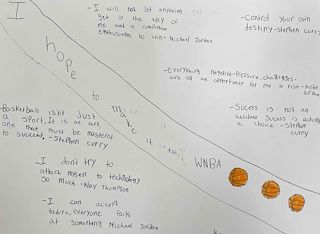 I
hope
to
make
it
to
WNBA
-I will not let anything
get in the way of
me and a
enthusiasm to win- Michael Jordan
-Control your own
destiny-Stephen curry
-Everything negative-Pressure, challenges-
are all an opportunity for me to rise-kobe
-Sucess is not an
accident Sucess is actually
a choice -Stephen
curry
-Basketball isn't Just
a sport, It is an art,
one that must be mastered
to succeed, -Stephen curry
-I don't try to
attach myself to technology
so much -Klay Thompson
-I can accept
failure, Everyone fails
at something Michael Jordan